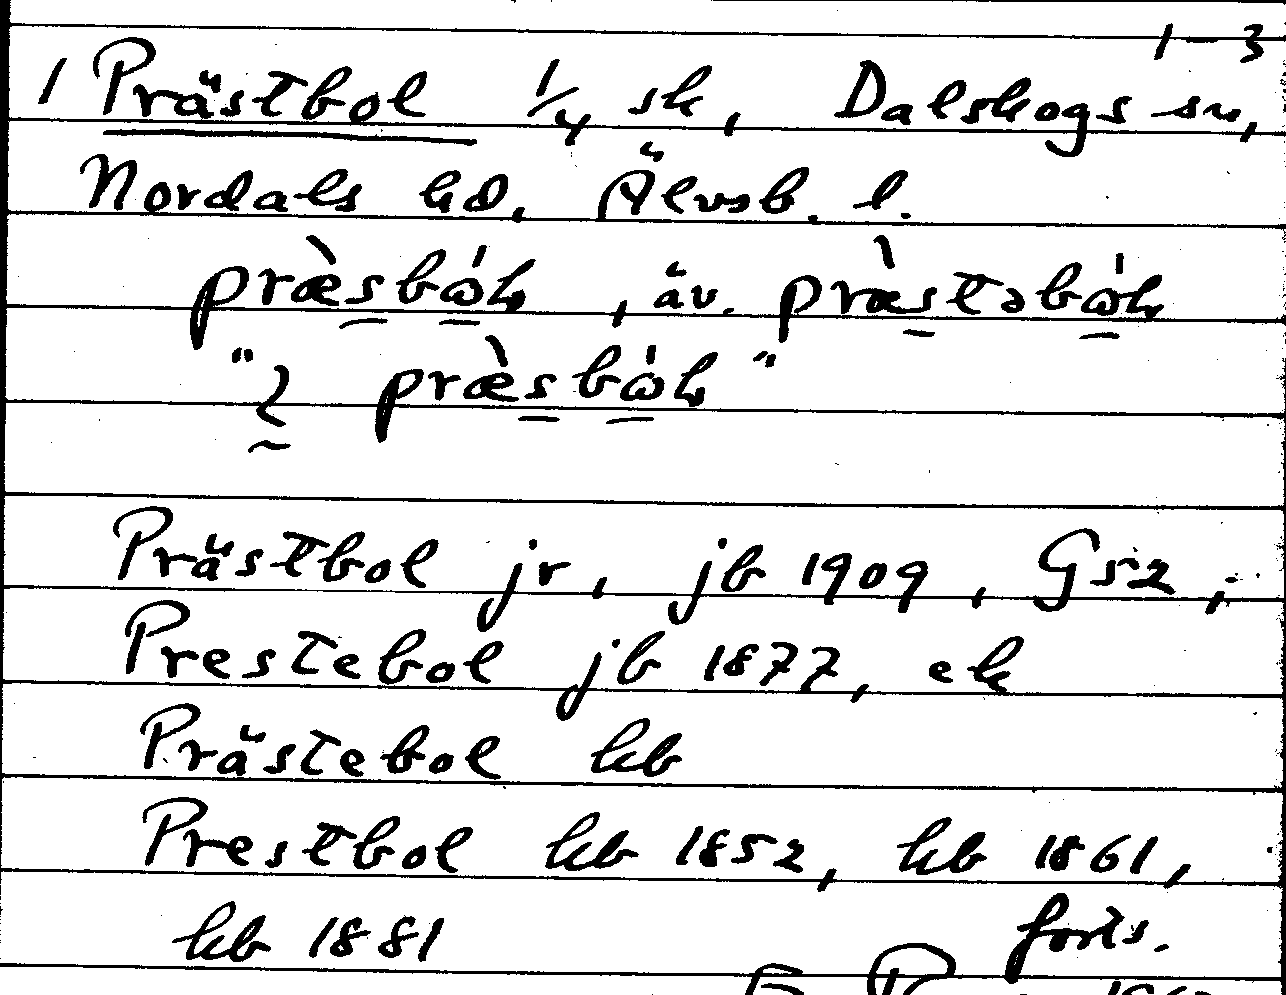 1-3
1 Prästbol 1/4 sk, Dalskogs sn,
Nordals hd. Älvsb. l.
præ̀sbώɫ, äv. præ̀stəbώɫ
"ɩ præ̀sbώɫ"
Prästbol jr, jb 1909, G52,
Prestebol jb 1877, ek
Prästebol kb
Prestbol kb 1852, kb 1861,
kb 1881 forts.